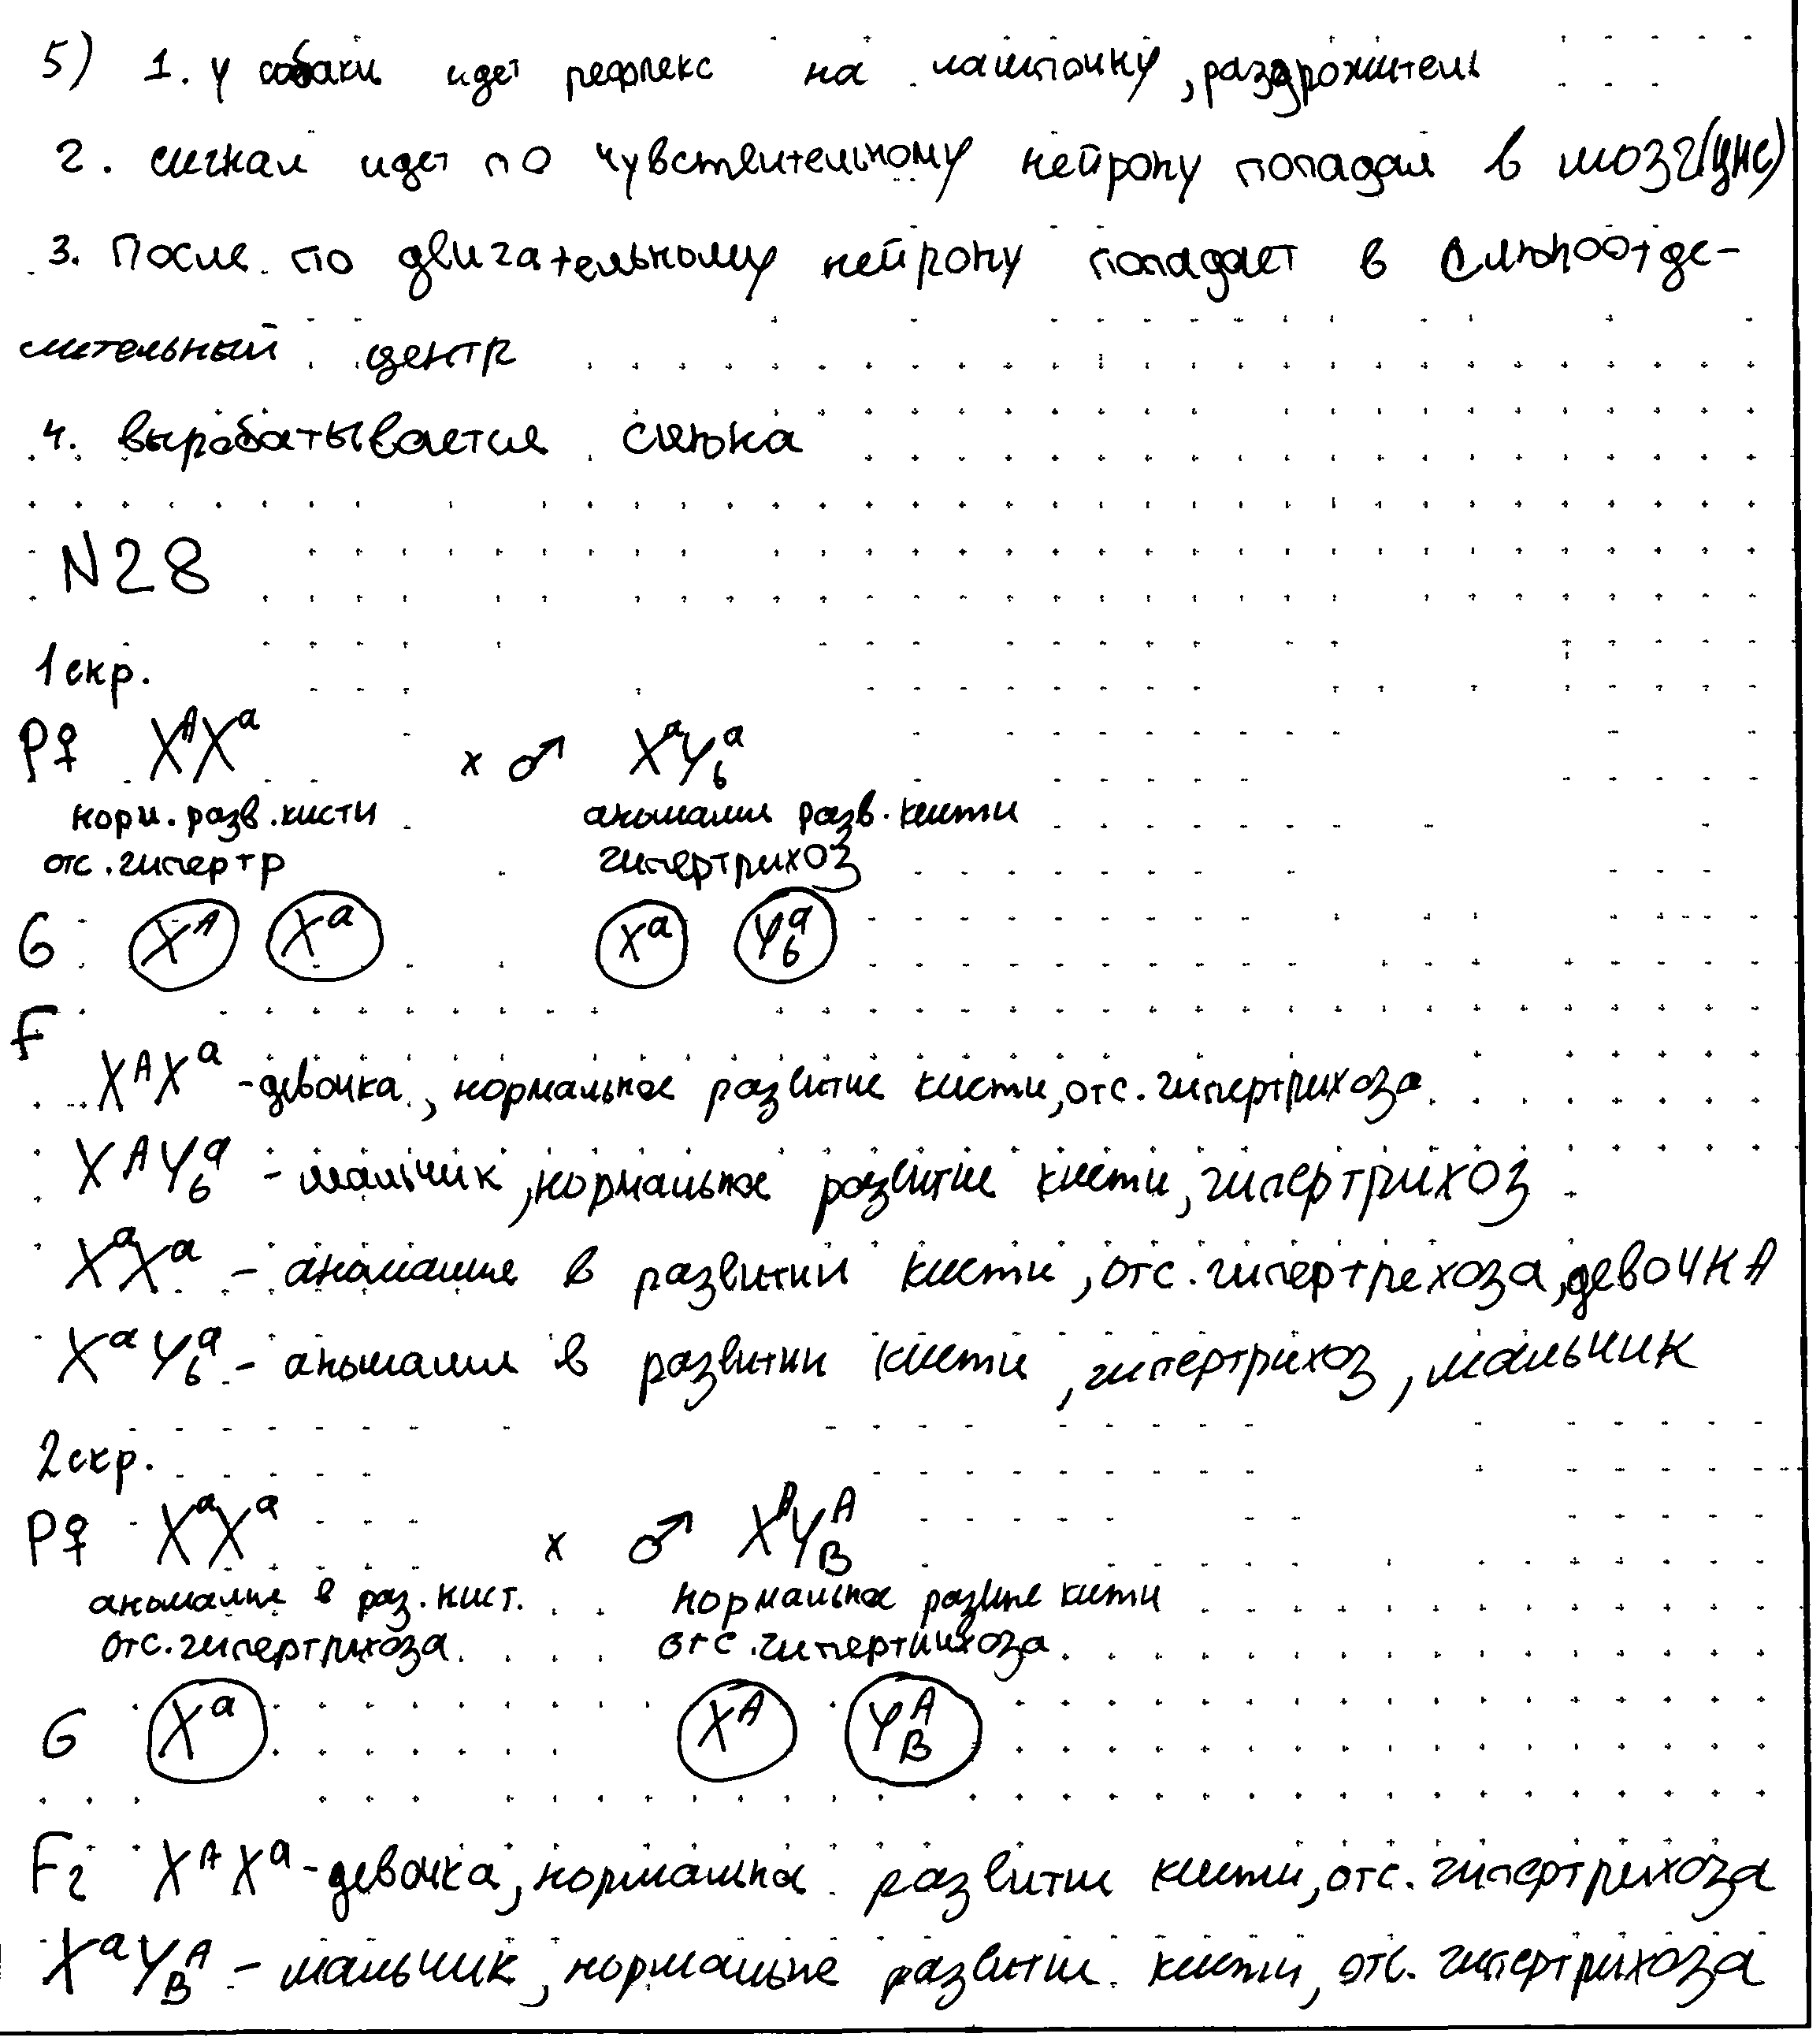 5) 1. у собаки идет рефлекс на лампочку, раздрожитель
2. сигнал идет по чувствительному нейрону попадая в мозг(цнс)
3. После по двигательному нейрону попадает в слюноотде-
лительный центр
4. вырабатывается слюна
N28
1 скр.
P♀ XᴬXᵃ x ♂ XᵃY₆ᵃ
норм. разв. кисти аномалия разв. кисти
отс. гипертр гипертрихоз
G Xᴬ Xᵃ Xᵃ Y₆ᵃ
F
XᴬXᵃ - девочка, нормальное развитие кисти, отс. гипертрихоза
XᴬY₆ᵃ - мальчик, нормальное развитие кисти, гипертрихоз
XᵃXᵃ - аномалие в развитии кисти, отс. гипертрехоза, девочка
XᵃY₆ᵃ - аномалия в развитии кисти, гипертрихоз, мальчик
2 скр.
P♀ XᵃXᵃ x ♂ XᴬY_Bᴬ
аномалие в раз. кист. нормальное развитие кисти
отс. гипертрихоза отс. гипертрихоза
G Xᵃ Xᴬ Y_Bᴬ
F₂ XᴬXᵃ - девочка, нормальное развитие кисти, отс. гипертрихоза
XᵃY_Bᴬ - мальчик, нормальные развитие кисти, отс. гипертрихоза